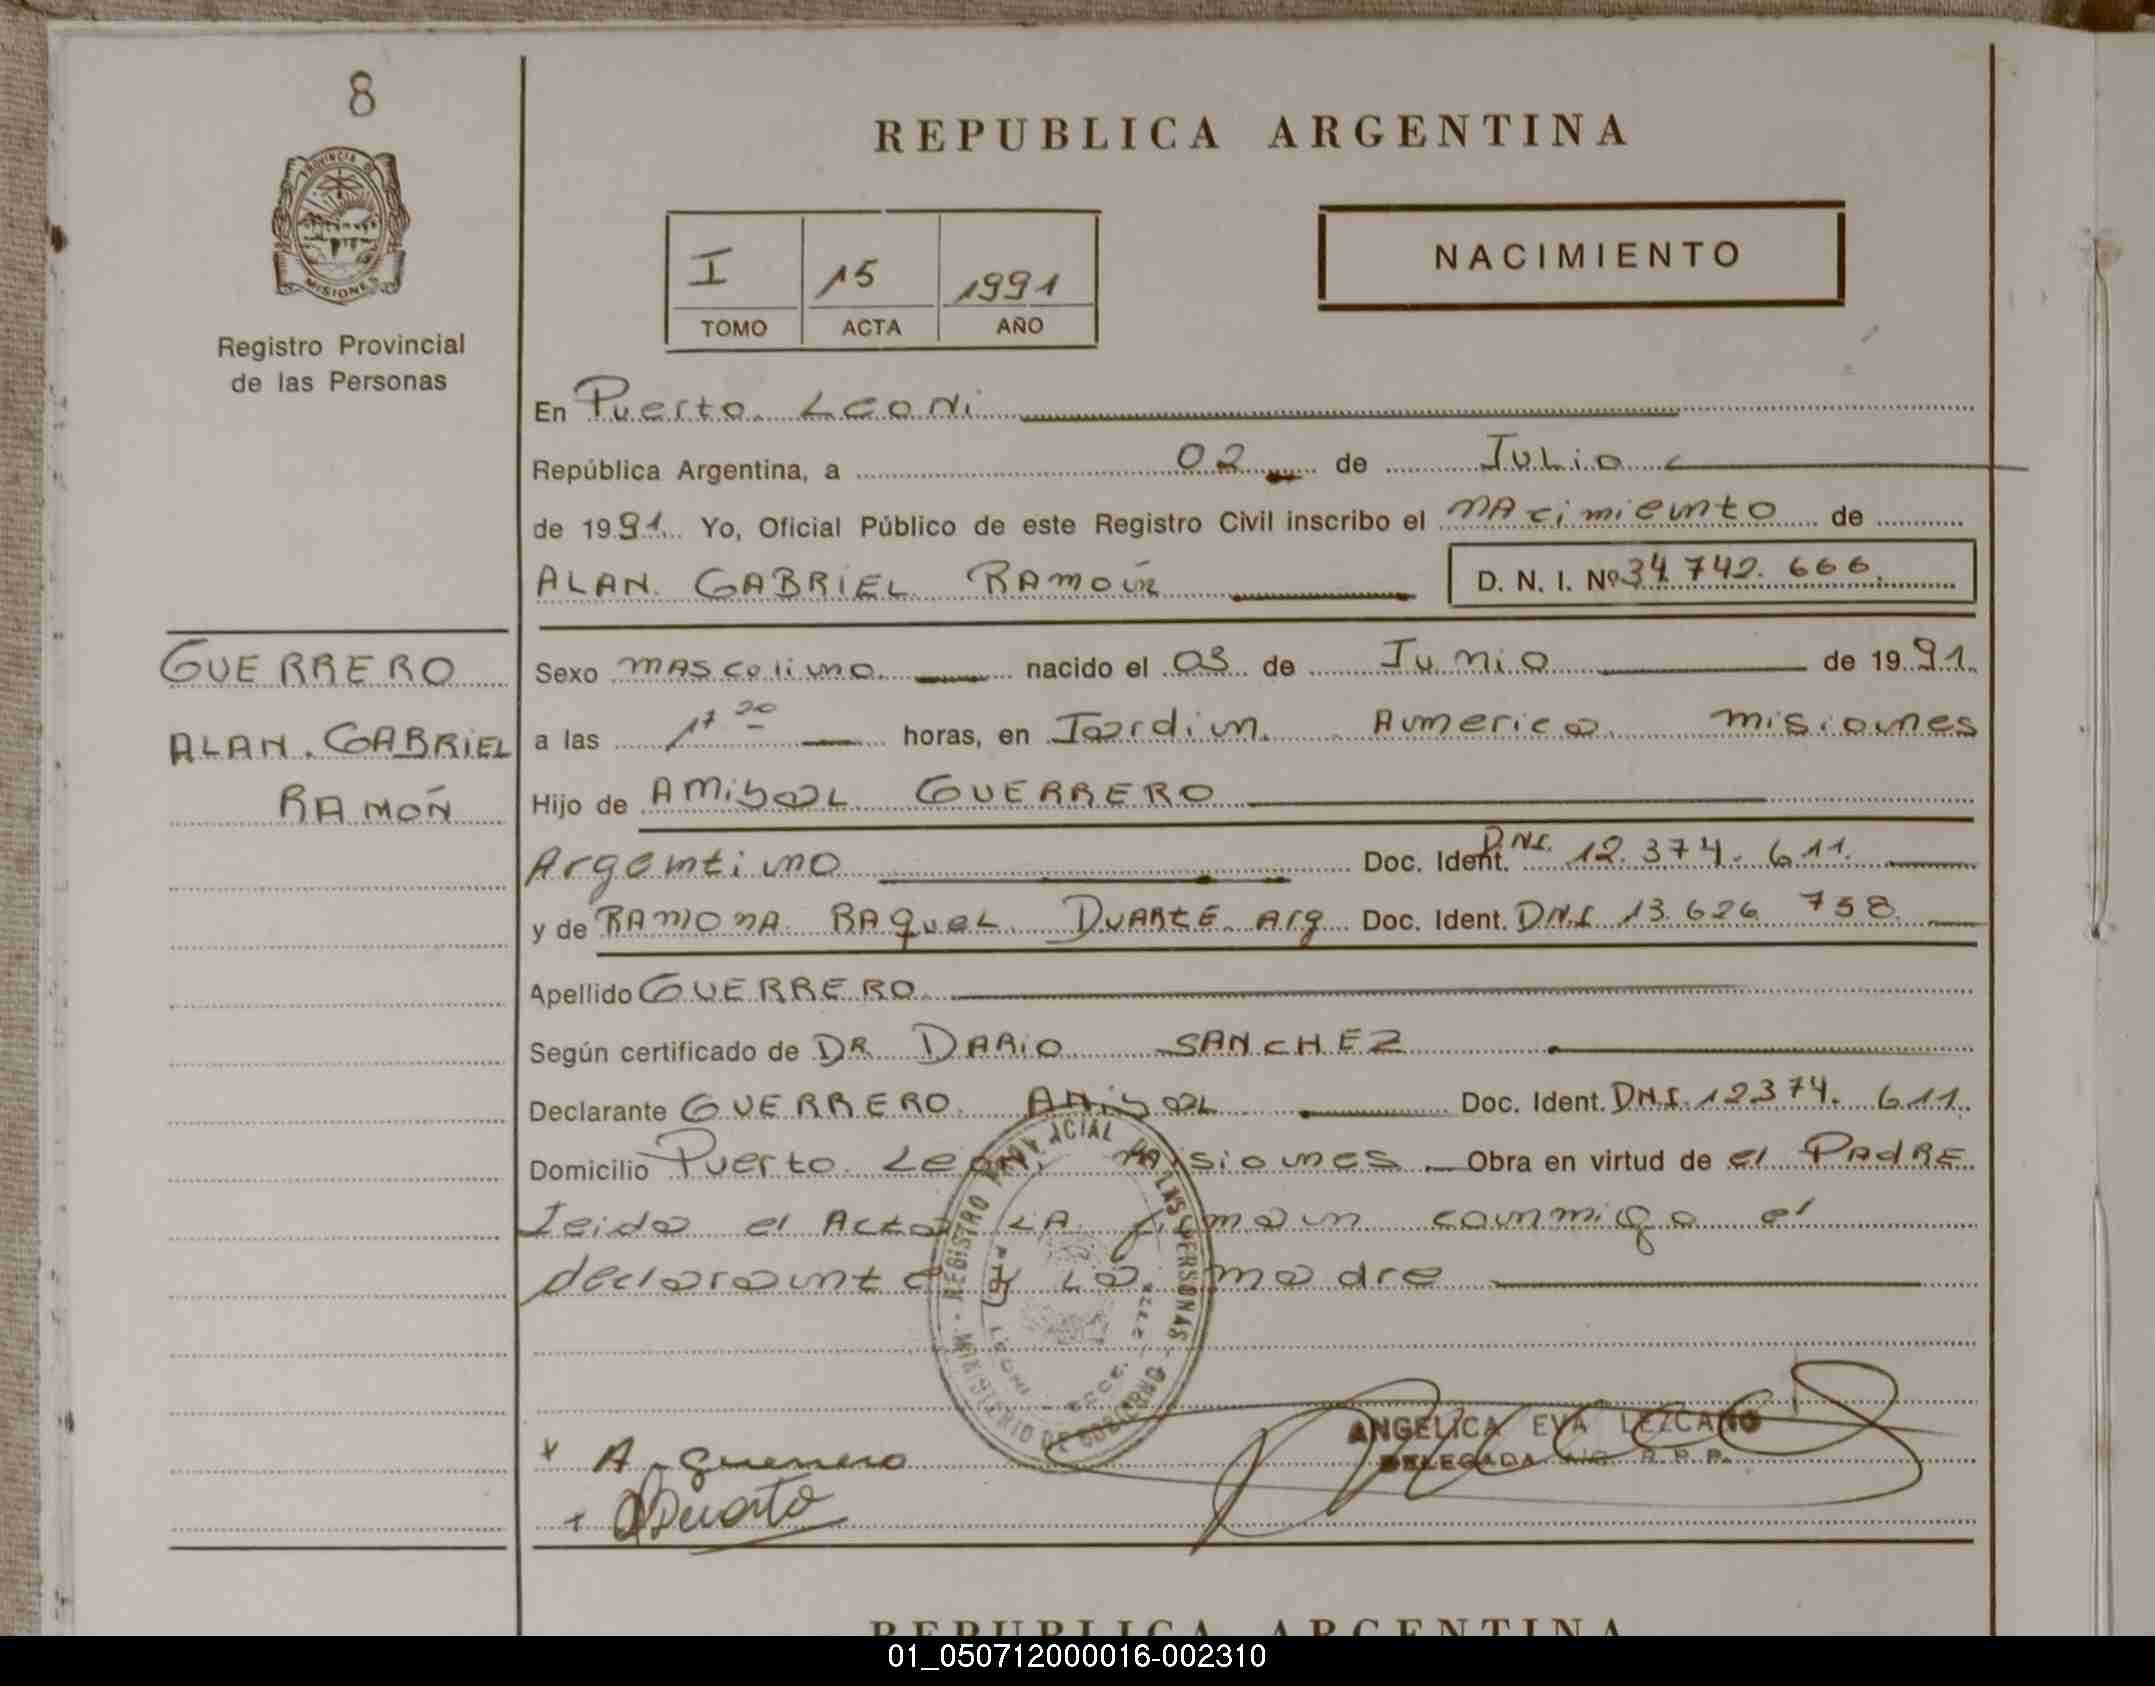 8
PROVINCIA DE
MISIONES
Registro Provincial
de las Personas
REPUBLICA ARGENTINA
I 15 1991
TOMO ACTA AÑO
NACIMIENTO
En Puerto Leoni
República Argentina, a 02 de Julio
de 1991 Yo, Oficial Público de este Registro Civil inscribo el nacimiento de
ALAN GABRIEL RAMÓN D. N. I. Nº 34 742. 666
GUERRERO
ALAN. GABRIEL
RAMÓN
Sexo masculino nacido el 03 de Junio de 1991.
a las 17 20 horas, en Jardin America misiones
Hijo de ANibaL GUERRERO
Argentino Doc. Ident. DNI. 12. 374. 611.
y de RAMONA RAqueL DUARTE Arg Doc. Ident. DNI 13.626 758
Apellido GUERRERO
Según certificado de DR DARiO SANCHEZ
Declarante GUERRERO ANibaL Doc. Ident. DNI. 12374. 611.
Domicilio Puerto Leoni Misiones Obra en virtud de el PAdRE
Leida el Acta LA firman conmigo el
declarante y La madre
REGISTRO PROVINCIAL DE LAS PERSONAS - MINISTERIO DE GOBIERNO -
LEONI
ANGELICA EVA LEZCANO
DELEGADA A/C R. P. P.
A. guerrero
Duarte
REPUBLICA ARGENTINA
01_050712000016-002310